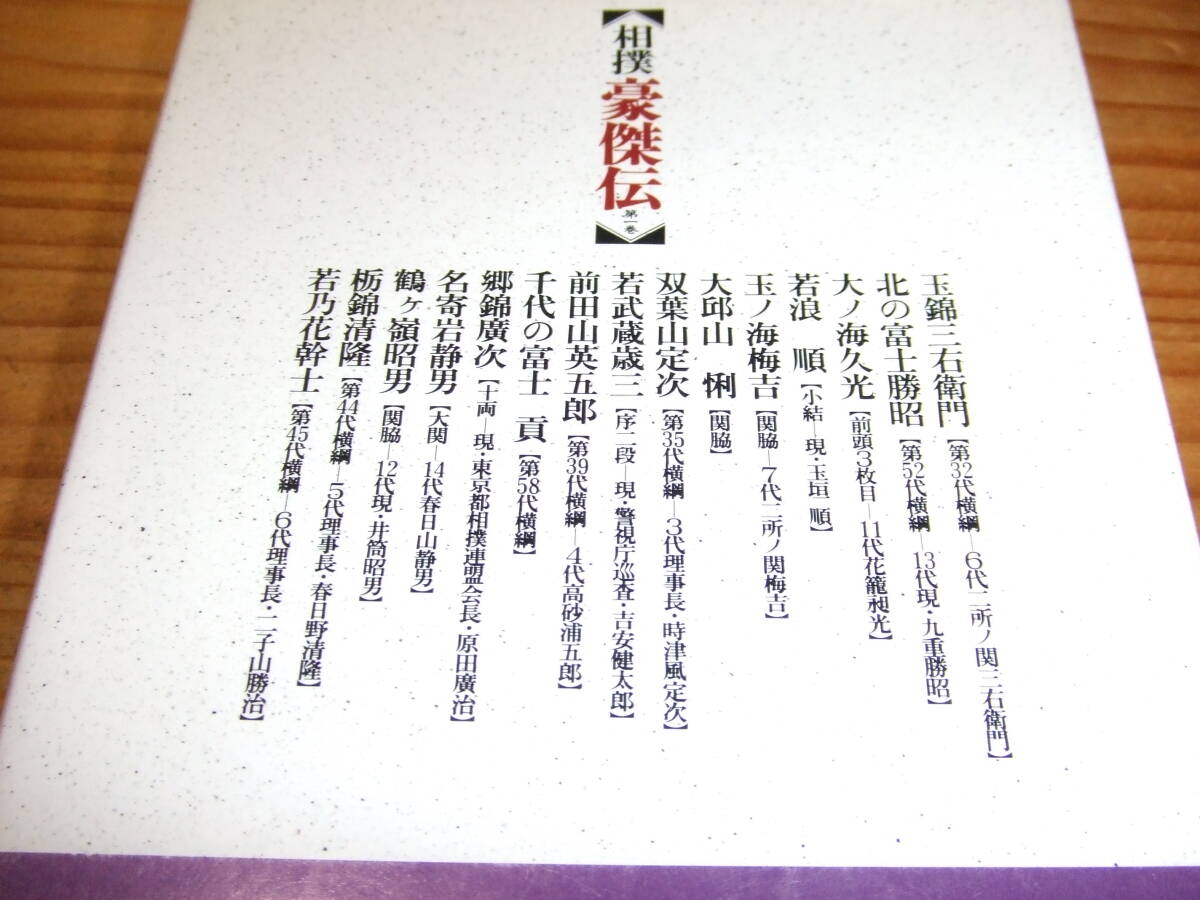 相撲
豪傑伝
第一巻
玉錦三右衛門【第32代横綱―6代二所ノ関三右衛門】
北の富士勝昭【第52代横綱―13代現・九重勝昭】
大ノ海久光【前頭3枚目―11代花籠昶光】
若浪 順【小結―現・玉垣 順】
玉ノ海梅吉【関脇―7代二所ノ関梅吉】
大邱山 悧【関脇】
双葉山定次【第35代横綱―3代理事長・時津風定次】
若武蔵歳三【序二段―現・警視庁巡査・吉安健太郎】
前田山英五郎【第39代横綱―4代高砂浦五郎】
千代の富士 貢【第58代横綱】
郷錦廣次【十両―現・東京都相撲連盟会長・原田廣治】
名寄岩静男【大関―14代春日山静男】
鶴ヶ嶺昭男【関脇―12代現・井筒昭男】
栃錦清隆【第44代横綱―5代理事長・春日野清隆】
若乃花幹士【第45代横綱―6代理事長・二子山勝治】